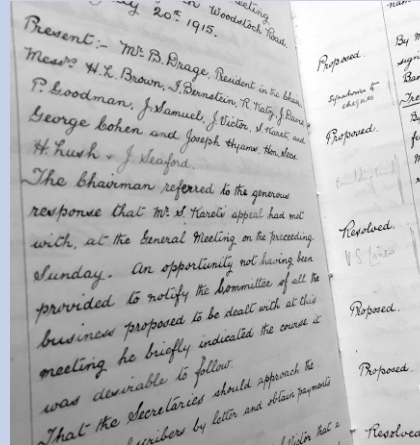 Meeting
Woodstock Road.
July 20th 1915.
Present:- Mr B. Drage, President in the Chair
Messrs H. L. Brown, I. Bernstein, R. Katz, J. Davis,
P. Goodman, J. Samuel, J. Victor, S. Karet, and
George Cohen and Joseph Hyams, Hon. Secs
H. Lush & J. Seaford.
The Chairman referred to the generous
response that Mr S. Karet's appeal had met
with, at the General Meeting on the preceeding
Sunday. An opportunity not having been
provided to notify the Committee of all the
business proposed to be dealt with at this
meeting he briefly indicated the course it
was desirable to follow.
That the Secretaries should approach the
by letter and obtain payments
Victor that a
Proposed.
Signatories to
cheques
Proposed.
Resolved.
Proposed.
Proposed.
Resolved
By M